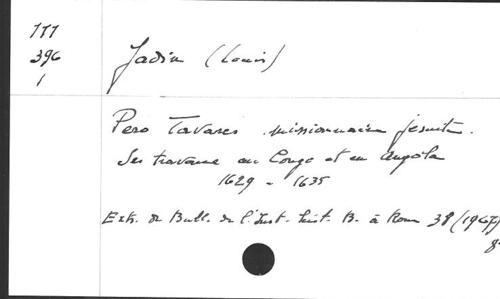 777
396
1
Jadin (Louis)
Pero Tavares missionnaire jésuite.
Ses travaux au Congo et en Angola
1629 - 1635
Extr. de Bull. de l'Inst. hist. B. à Rome 38 (1967)
8°